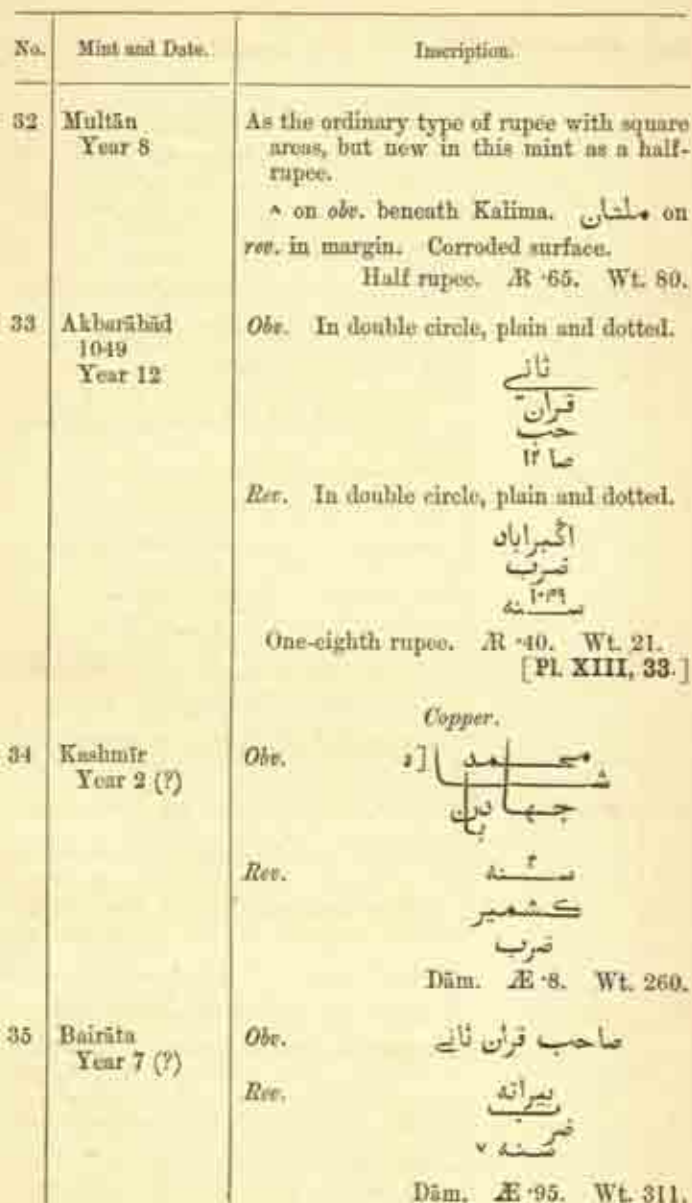 No. Mint and Date. Inscription.
32 Multān As the ordinary type of rupee with square
Year 8 areas, but new in this mint as a half-
rupee.
٨ on obv. beneath Kalima. ملتان on
rev. in margin. Corroded surface.
Half rupee. Æ ·65. Wt. 80.
33 Akbarābād Obv. In double circle, plain and dotted.
1049
Year 12
ثانے
قران
حب
صا ١٢
Rev. In double circle, plain and dotted.
اكبراباد
ضرب
سنه ١٠۴٩
One-eighth rupee. Æ ·40. Wt. 21.
[Pl. XIII, 33.]
Copper.
34 Kashmīr Obv. محمد [ه
Year 2 (?) شا
جها
Rev. سنه ٢
كشمير
ضرب
Dām. Æ ·8. Wt. 260.
35 Bairāta Obv. صاحب قران ثانے
Year 7 (?)
Rev. بيراته
ضر
سنه ٧
Dām. Æ ·95. Wt. 311.